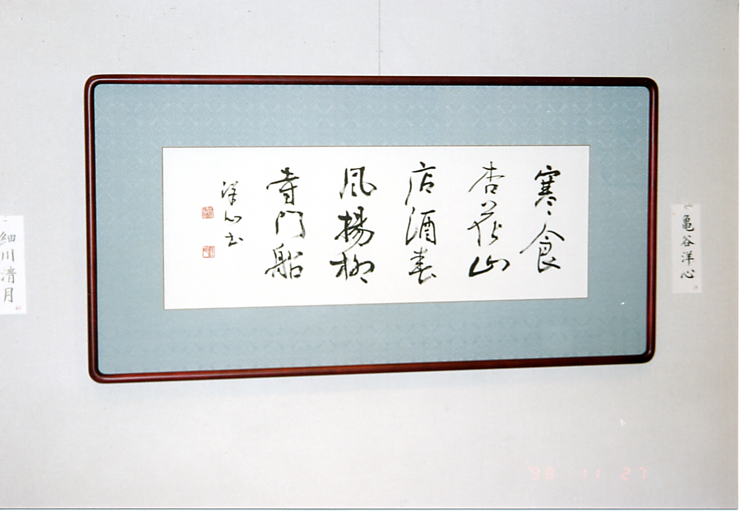 寒食
杏花山
店酒春
風楊柳
寺門船
洋心書
亀谷洋心
細川清月
98 11 27